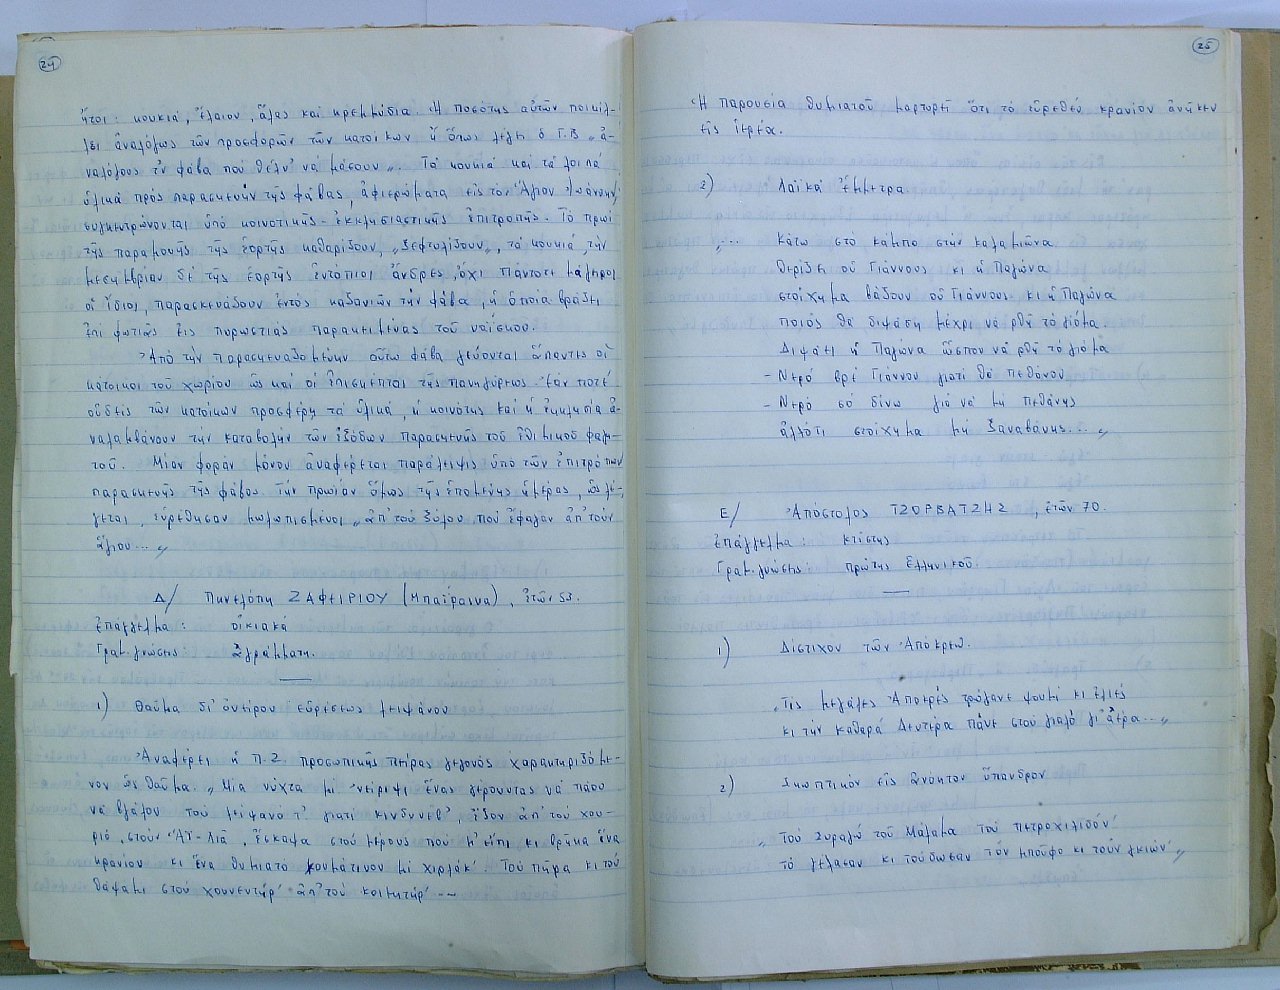 24
ἤτοι: κουκιά, ἔλαιον, ἅλας καί κρεμμύδια. Ἡ ποσότης αὐτῶν ποικίλ-
λει ἀναλόγως τῶν προσφορῶν τῶν κατοίκων ἤ ὅπως λέγει ὁ Γ.Β „ἀ-
ναλόγους τ'ν φάβα πού θέλν' νά μάσουν„. Τά κουκιά καί τά λοιπά
ὑλικά πρός παρασκευήν τῆς φάβας, ἀφιερώματα εἰς τόν Ἅγιον Ἰωάννην,
συγκεντρώνονται ὑπό κοινοτικῆς - ἐκκλησιαστικῆς ἐπιτροπῆς. Τό πρωί
τῆς παραμονῆς τῆς ἑορτῆς καθαρίζουν, „ξεφτολίζουν„, τά κουκιά, τήν
μεσημβρίαν δέ τῆς ἑορτῆς ἐντόπιοι ἄνδρες, ὄχι πάντοτε μάγειροι
οἱ ἴδιοι, παρασκευάζουν ἐντός καζανιῶν τήν φάβα, ἡ ὁποία βράζει
ἐπί φωτιᾶς εἰς πυρωστιάς παρακειμένας τοῦ ναΐσκου.
Ἀπό τήν παρασκευαζομένην οὕτω φάβα γεύονται ἅπαντες οἱ
κάτοικοι τοῦ χωρίου ὡς καί οἱ ἐπισκέπται τῆς πανηγύρεως. Ἐάν ποτέ
οὐδείς τῶν κατοίκων προσφέρῃ τά ὑλικά, ἡ κοινότης καί ἡ ἐκκλησία ἀ-
ναλαμβάνουν τήν καταβολήν τῶν ἐξόδων παρασκευῆς τοῦ ἐθιμικοῦ φαγη-
τοῦ. Μίαν φοράν μόνον ἀναφέρεται παράλειψις ὑπό τῶν ἐπιτρόπων
παρασκευῆς τῆς φάβας. Τήν πρωίαν ὅμως τῆς ἑπομένης ἡμέρας, ὡς λέ-
γεται, εὑρέθησαν μωλωπισμένοι „ἀπ' τού ξύλου πού ἔφαγαν ἀπ' τούν
ἅγιου...„
Δ/ Πηνελόπη ΖΑΦΕΙΡΙΟΥ (Μπαΐραινα), ἐτῶν 53.
Ἐπάγγελμα: οἰκιακά
Γραμ. γνώσεις: ἀγράμματη.
1) Θαῦμα δι' ὀνείρου εὑρέσεως λειψάνου
Ἀναφέρει ἡ Π.Ζ. προσωπικῆς πείρας γεγονός χαρακτηριζόμε-
νον ὡς θαῦμα. „Μία νύχτα μέ 'νείριψι ἕνας γέρουντας νά πάου
νά βγάλου τού λείψανό τ' γιατί κινδυνεύ', ἔξου ἀπ' τού χου-
ριό, στούν Ἀϊ-Λιᾶ. Ἔσκαψα στού μέρους πού μ' εἶπι κι βρῆκα ἕνα
κρανίου κι ἕνα θυμιατό χουμάτινου μέ χιρλάκ'. Τού πῆρα κι τού
θάψαμι στού χουνευτήρ' ἀπ' τού κοιμητήρ' --
25
Ἡ παρουσία θυμιατοῦ μαρτυρεῖ ὅτι τό εὑρεθέν κρανίον ἀνῆκεν
εἰς ἱερέα.
2) Λαϊκά ἔμμετρα.
„... Κάτω στό κάμπο στήν καλαμιῶνα
θερίζει οὗ Γιάννους κι ἡ Παγώνα
στοίχημα βάζουν οὗ Γιάννους κι ἡ Παγώνα
ποιός θά διψάσῃ μέχρι νά ρθῆ τό γιόμα.
Διψάει ἡ Παγώνα ὥσπου νά ρθῆ τό γιόμα
- Νερό βρέ Γιάννου γιατί θά πεθάνου
- Νερό σό δίνω γιά νά μή πεθάνης
ἀλλότι στοίχημα μή ξαναβάνης... „
Ε/ Ἀπόστολος ΤΖΟΡΒΑΤΖΗΣ, ἐτῶν 70.
Ἐπάγγελμα: κτίστης
Γραμ. γνώσεις: πρώτης Ἑλληνικοῦ.
1) Δίστιχον τῶν Ἀπόκρεω.
„Τίς μεγάλες Ἀποκρές τρώγανε ψουμί κι ἐλιές
κι τήν καθαρά Δευτέρα πᾶνε στού γιαλό γι' ἀέρα...„
2) Σκωπτικόν εἰς ἀνόητον ὕπανδρον
„Τού Ζυραλῆ τοῦ Μάλαμα τού πετροχιλιδόν'
τό γέλασαν κι τοὔδωσαν τόν μποῦφο κι τούν γκιών'„